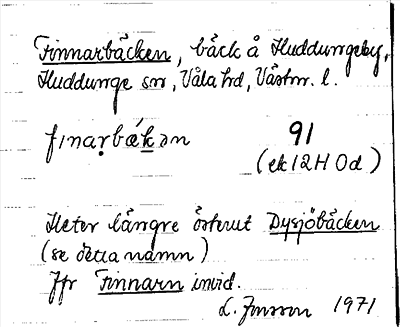 Finnarbäcken, bäck å Huddungeby,
Huddunge sn, Våla hd, Västm. l.
fɩnaṛbǽkən 91
(ek 12H 0d)
Heter längre österut Dysjöbäcken
(se detta namn)
Jfr Finnarn invid.
L. Jonsson 1971